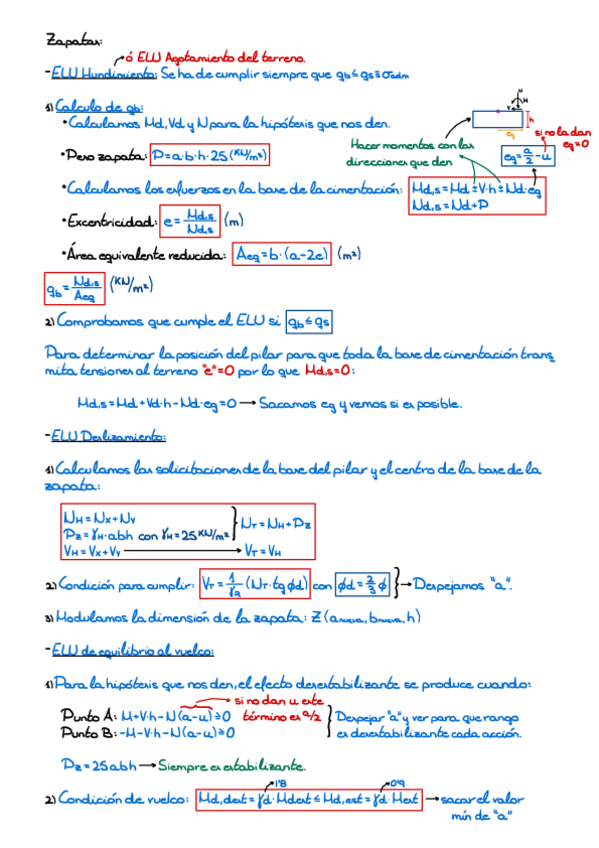 Zapatas:
ó ELU Agotamiento del terreno.
- ELU Hundimiento: Se ha de cumplir siempre que qb ≤ qs ≡ σadm
1) Calculo de qb:
• Calculamos Md, Vd y N para la hipótesis que nos den.
N
M
V
h
eq
si no la dan eq=0
Hacer momentos con las direcciones que den
eq = a/2 - u
• Peso zapata: P=a·b·h·25 (KN/m²)
• Calculamos los esfuerzos en la base de la cimentación: Md,s = Md ± V·h ± Nd·eq
Nd,s = Nd + P
• Excentricidad: e = Md,s/Nd,s (m)
• Área equivalente reducida: Aeq = b·(a-2e) (m²)
qb = Nd,s/Aeq (KN/m²)
2) Comprobamos que cumple el ELU si qb ≤ qs
Para determinar la posición del pilar para que toda la base de cimentación trans
mita tensiones al terreno "e"=0 por lo que Md,s=0:
Md,s = Md + Vd·h - Nd·eq = 0 → Sacamos eq y vemos si es posible.
- ELU Deslizamiento:
1) Calculamos las solicitaciones de la base del pilar y el centro de la base de la
zapata:
NH = NX + NY
PZ = γH·abh con γH = 25 KN/m² } NT = NH + PZ
VH = VX + VY → VT = VH
2) Condición para cumplir: VT = 1/γR (NT·tg ϕd) con ϕd = 2/3 ϕ } → Despejamos "a".
3) Modulamos la dimensión de la zapata: Z (anueva, bnueva, h)
- ELU de equilibrio al vuelco:
1) Para la hipótesis que nos den, el efecto desestabilizante se produce cuando:
si no dan u este
término es a/2
Punto A: M+V·h-N(a-u) ≥ 0
Punto B: -M-V·h-N(a-u) ≥ 0
Despejar "a" y ver para que rango
es desestabilizante cada acción.
PZ = 25abh → Siempre es estabilizante.
1'8
0'9
2) Condición de vuelco: Md,dest = γd·Mdest ≤ Md,est = γd·Mest → sacar el valor
mín de "a"